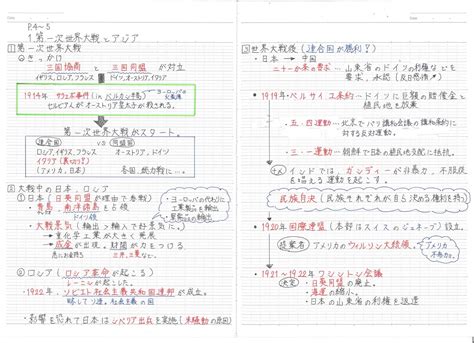 P.4～5
1.第一次世界大戦とアジア
①第一次世界大戦
きっかけ
三国協商 と 三国同盟 が 対立
イギリス, ロシア, フランス ドイツ, オーストリア, イタリア
1914年 サラエボ事件 (in バルカン半島)
ヨーロッパの火薬庫
セルビア人がオーストリア皇太子が殺される。
第一次世界大戦がスタート。
連合国 vs 同盟国
ロシア, イギリス, フランス オーストリア, ドイツ
イタリア (裏切り!)
(アメリカ, 日本) 各国…総力戦に…
②大戦中の日本、ロシア
①日本 (日英同盟が理由で参戦)
青島・南洋諸島を占領
ドイツ領
大戦景気 (輸出>輸入で好景気に。)
重化学工業が大きく発展
成金が出現。財閥が力をつける
急にお金持ちになった人
三井、三菱など
ヨーロッパの代わりに軍需品の輸出
②ロシア (ロシア革命が起こる)
レーニンが起こした。
1922年 ソビエト社会主義共和国連邦が成立
略してソ連。社会主義の国。
影響を恐れて日本はシベリア出兵を実施 (米騒動の原因)
③世界大戦後 (連合国が勝利!)
日本 → 中国
二十一か条の要求… 山東省のドイツの利権などを要求、承認
1919年・ベルサイユ条約…ドイツに巨額の賠償金と植民地を放棄
五・四運動…北京でパリ講和会議の講和条約に対する反対運動
三・一運動…朝鮮で日本の植民地支配に抵抗
インドでは、ガンディーが非暴力、不服従を唱える運動を起こす。
民族自決 (民族それぞれが自ら決める権利を持つ)
1920年・国際連盟 (本部はスイスのジュネーブ)
提案者 アメリカのウィルソン大統領
アメリカ不参加
1921～1922年 ワシントン会議
決定 ・日英同盟の廃止。
・海軍の縮小。
・日本の山東省の利権を返還。